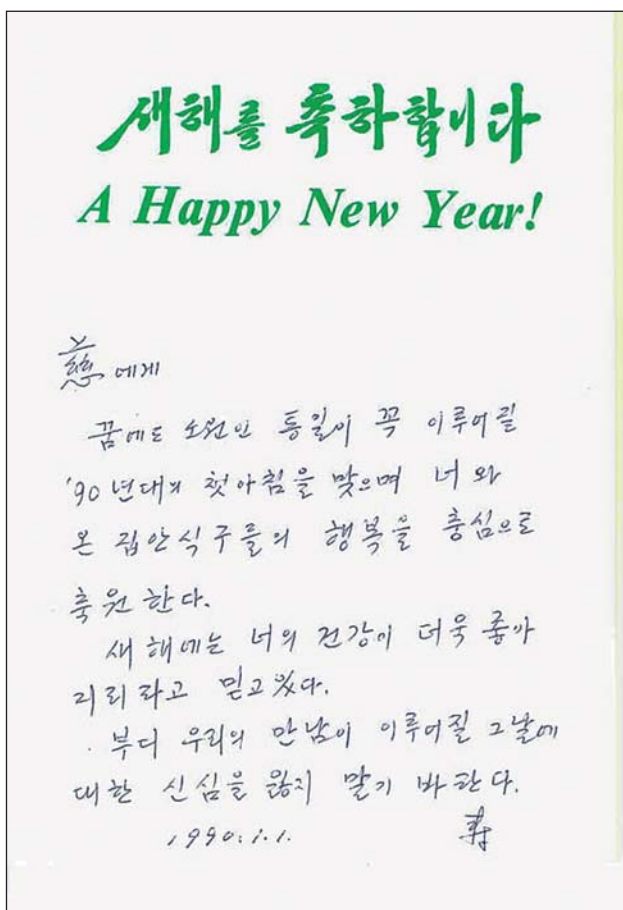 새해를 축하합니다
A Happy New Year!
에게
꿈에도 소원인 통일이 꼭 이루어질
'90년대의 첫아침을 맞으며 너와
온 집안식구들의 행복을 충심으로
축원한다.
새해에는 너의 건강이 더욱 좋아
지리라고 믿고있다.
부디 우리의 만남이 이루어질 그날에
대한 신심을 잃지 말기 바란다.
1990.1.1.